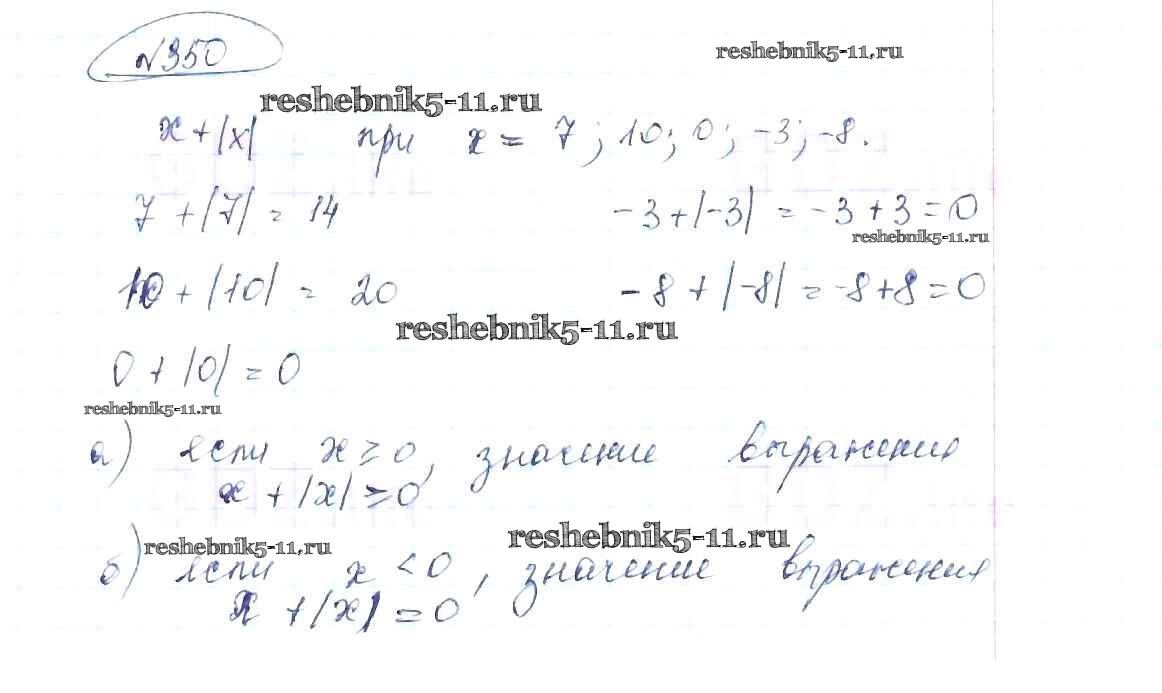 №350
reshebnik5-11.ru
reshebnik5-11.ru
x + |x| при x = 7; 10; 0; -3; -8.
7 + |7| = 14
-3 + |-3| = -3 + 3 = 0
reshebnik5-11.ru
10 + |10| = 20
-8 + |-8| = -8 + 8 = 0
reshebnik5-11.ru
0 + |0| = 0
reshebnik5-11.ru
а) если x ≥ 0, значение выражения
x + |x| ≥ 0
reshebnik5-11.ru
reshebnik5-11.ru
б) если x < 0, значение выражения
x + |x| = 0